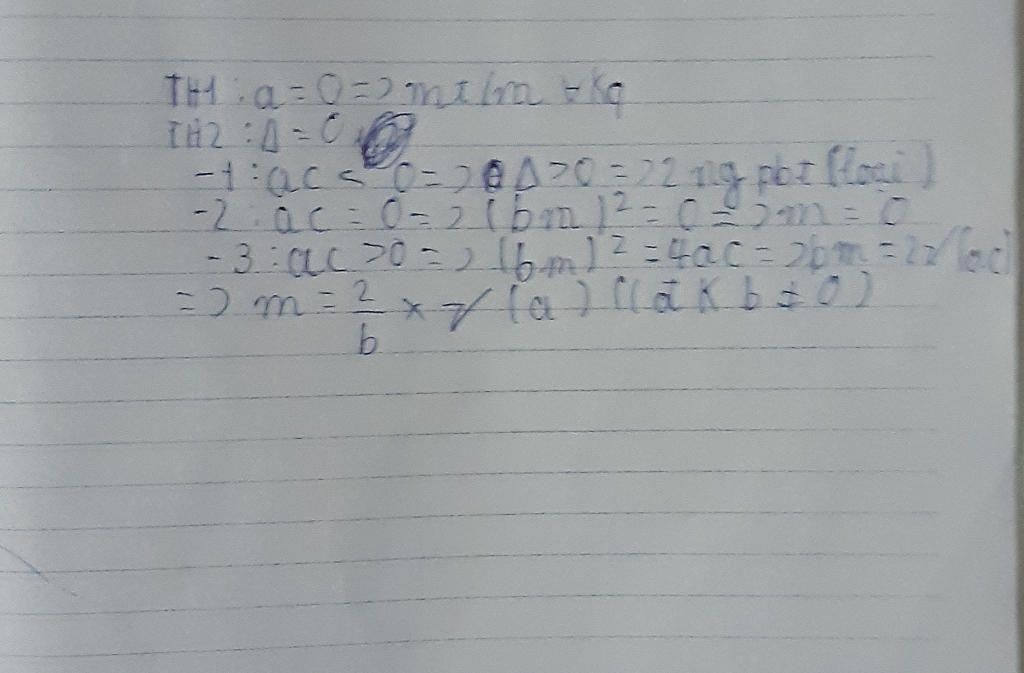 TH1 : a = 0 => m = /m KQ
TH2 : Δ = 0
-1 : ac < 0 => Δ > 0 => 2 ng pbt (loại)
-2 : ac = 0 => (bm)² = 0 => m = 0
-3 : ac > 0 => (bm)² = 4ac => bm = 2√(ac)
=> m = 2/b × √(a) (đK b ≠ 0)